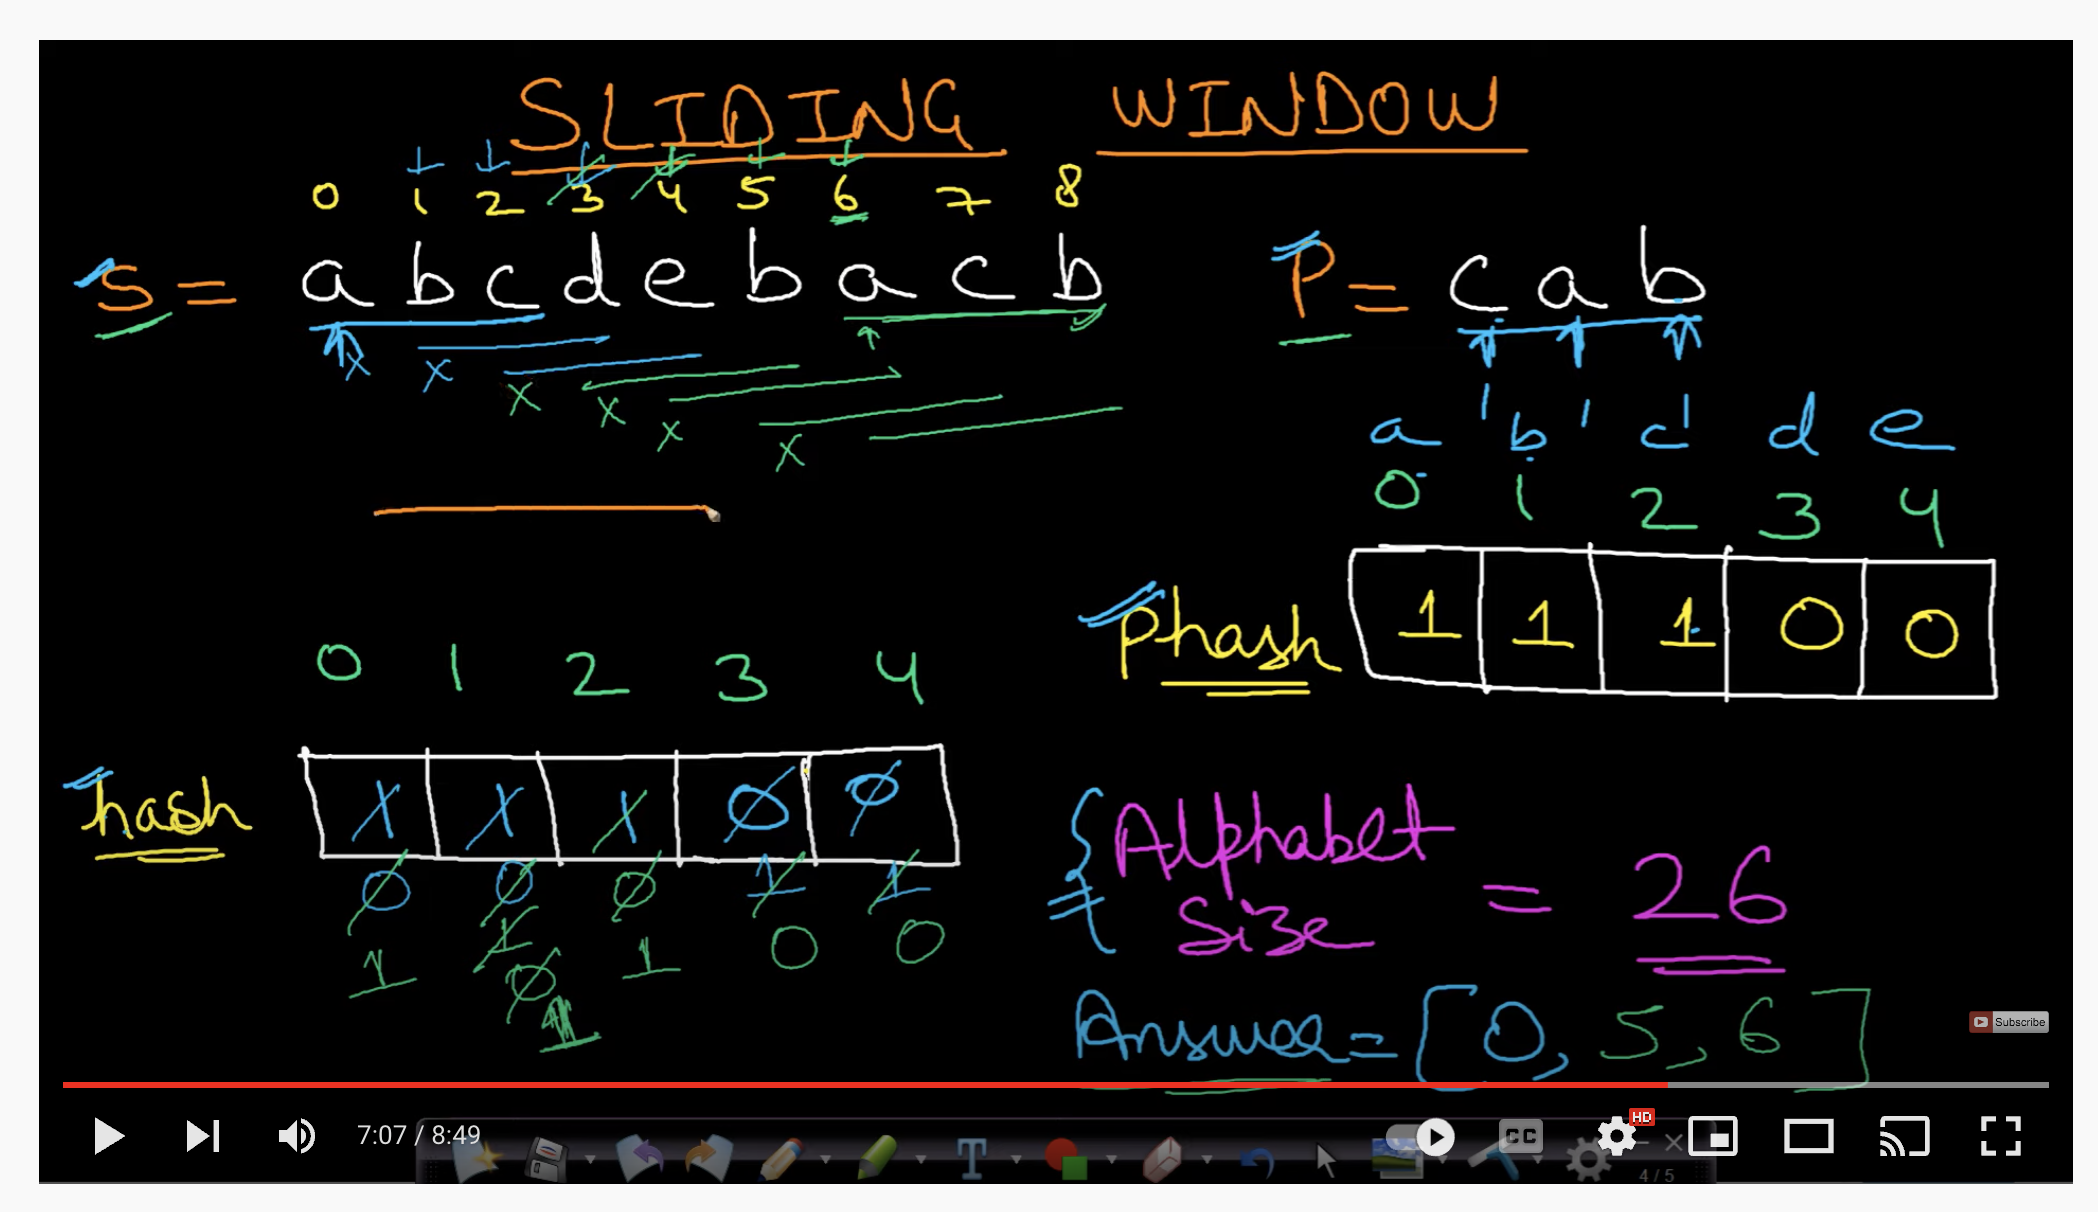 SLIDING WINDOW
0 1 2 3 4 5 6 7 8
S = a b c d e b a c b
P = c a b
x x x x x x
a b c d e
0 1 2 3 4
Phash 1 1 1 0 0
0 1 2 3 4
hash 1 1 1 0 0
0 0 0 1 1
1 1 1 0 0
0
1
{ Alphabet Size = 26
Answer = [0, 5, 6]
Subscribe
7:07 / 8:49
CC
HD
T
4 / 5